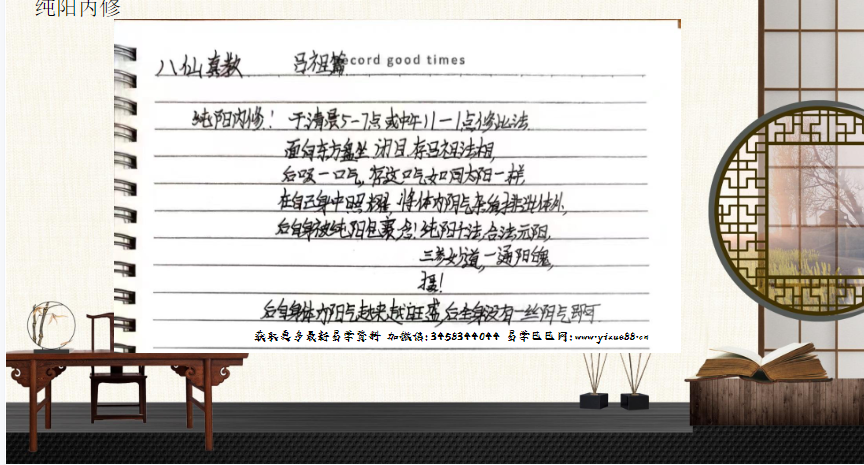 纯阳内修
八仙真教 吕祖篇 ecord good times
纯阳内修：于清晨5-7点或中午11-1点修此法.
面向东方盘坐 闭目.存吕祖法相,
后吸一口气,存这口气如同太阳一样,
在自己身中照耀,将体内阴气杂气排出体外,
后自身被纯阳包裹,念:纯阳十法,合法元阳,
三参妙道,一涌阳魄,
摄!
后自身体内阳气越来越旺盛,后全身没有一丝阴气即可.
获取更多最新易学资料 加微信:3458344044 易学巴巴网:www.yixue88.cn